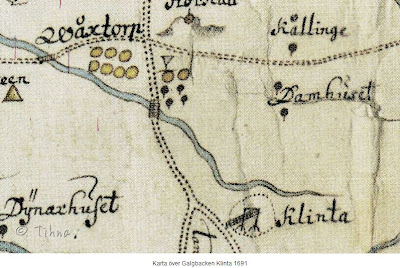 Wåxtorp
Kållinge
een
Damhuset
Dÿnarhuset
Klinta
Karta över Galgbacken Klinta 1691